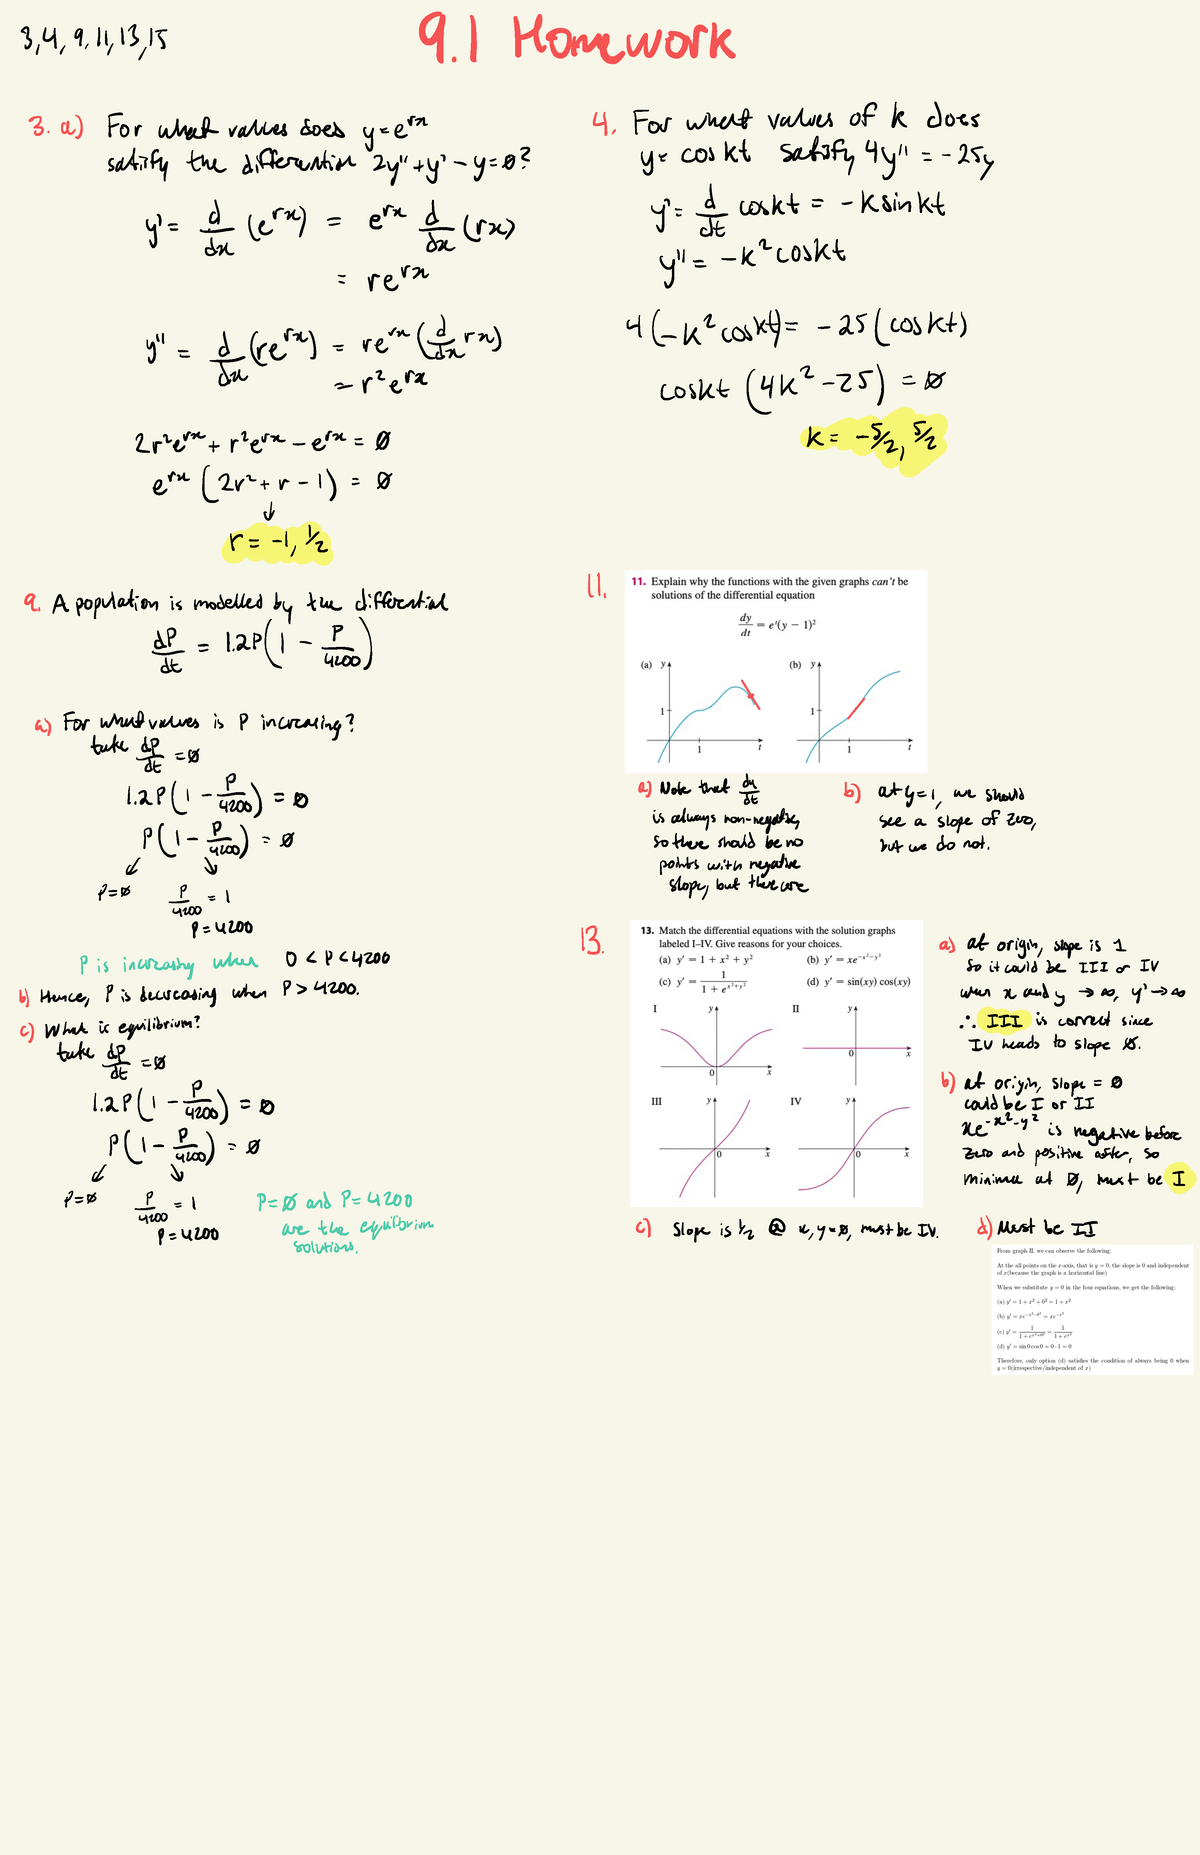 3,4,9,11,13,15
9.1 Homework
3. a) For what values does y=e^rx
satisfy the differential 2y''+y'-y=0?
y' = d/dx (e^rx) = e^rx d/dx (rx)
= re^rx
y'' = d/dx (re^rx) = re^rx (d/dx rx)
= r²e^rx
2r²e^rx + r²e^rx - e^rx = 0
e^rx (2r²+r-1) = 0
↓
r = -1, 1/2
4. For what values of k does
y = cos kt satisfy 4y'' = -25y
y' = d/dt coskt = -ksinkt
y'' = -k²coskt
4(-k²coskt) = -25(coskt)
coskt (4k²-25) = 0
k = -5/2, 5/2
9. A population is modelled by the differential
dP/dt = 1.2P(1 - P/4200)
a) For what values is P increasing?
take dP/dt = 0
1.2P(1 - P/4200) = 0
P(1 - P/4200) = 0
P=0 P/4200 = 1
P=4200
P is increasing when 0 < P < 4200
b) Hence, P is decreasing when P > 4200.
c) What is equilibrium?
take dP/dt = 0
1.2P(1 - P/4200) = 0
P(1 - P/4200) = 0
P=0 P/4200 = 1
P=4200
P=0 and P=4200
are the equilibrium
solutions.
11.
11. Explain why the functions with the given graphs can't be
solutions of the differential equation
dy/dt = e^t(y − 1)²
(a) y (b) y
1 1
1 t 1 t
a) Note that dy/dt
is always non-negative,
so there should be no
points with negative
slope, but there are
b) at y=1, we should
see a slope of zero,
but we do not.
13.
13. Match the differential equations with the solution graphs
labeled I–IV. Give reasons for your choices.
(a) y' = 1 + x² + y² (b) y' = xe^(−x²−y²)
(c) y' = 1/(1 + e^(x²+y²)) (d) y' = sin(xy) cos(xy)
I y II y
0 x 0 x
III y IV y
0 x 0 x
a) at origin, slope is 1
so it could be III or IV
when x and y → ∞, y' → ∞
∴ III is correct since
IV heads to slope 0.
b) at origin, slope = 0
could be I or II
xe^(-x²-y²) is negative before
zero and positive after, so
minima at 0, must be I
c) Slope is 1/2 @ x,y=0, must be IV.
d) Must be II
From graph II, we can observe the following:
At the all points on the x-axis, that is y = 0, the slope is 0 and independent
of x(because the graph is a horizontal line)
When we substitute y = 0 in the four equations, we get the following:
(a) y' = 1 + x² + 0² = 1 + x²
(b) y' = xe^(−x²−0²) = xe^(−x²)
(c) y' = 1/(1 + e^(x²+0²)) = 1/(1 + e^(x²))
(d) y' = sin 0 cos 0 = 0 · 1 = 0
Therefore, only option (d) satisfies the condition of always being 0 when
y = 0(irrespective/independent of x)